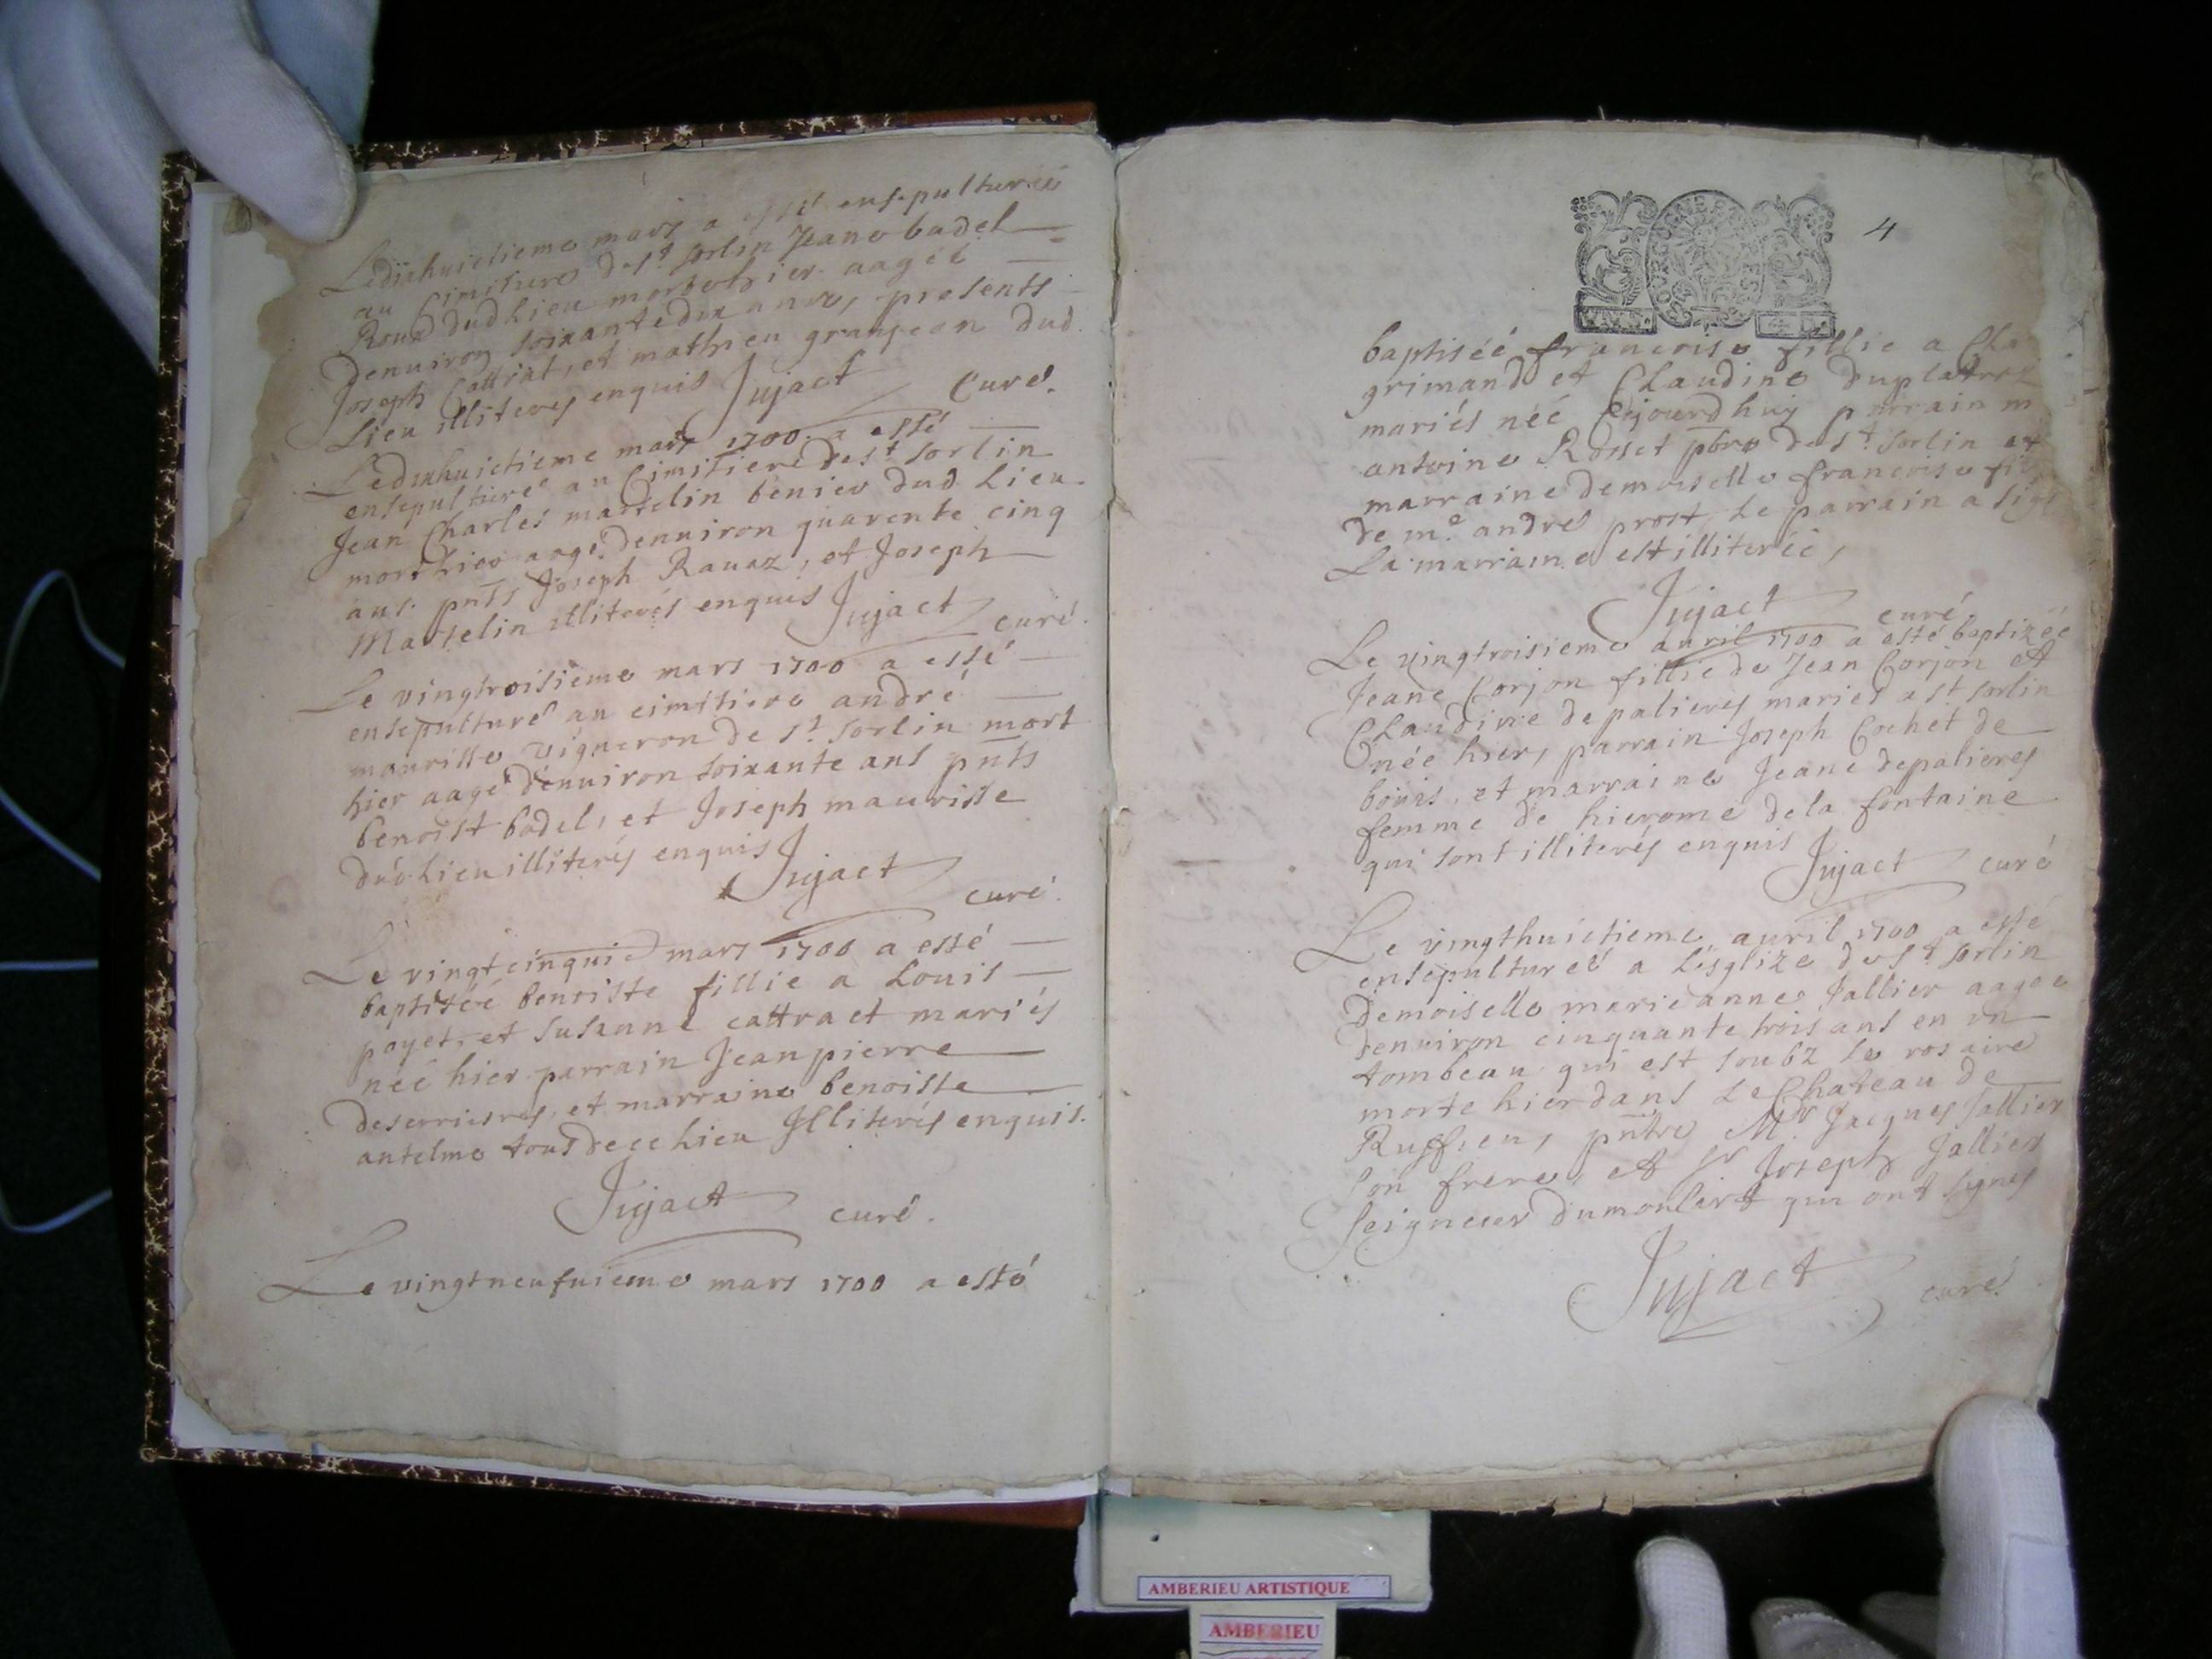 Le dixhuictieme mars a esté ensepulturéé
au Cimitiere de st sorlin Jeane badel
Roux dud Lieu morte hier aagéé
denuiron soixante dix ans, presents
Joseph Cattrat, et mathieu granjean dud.
Lieu illiterés enquis Jujact Curé.
Le dixhuictieme mars 1700. a esté
ensepulturé au Cimitiere de st sorlin
Jean Charles martelin benier dud. Lieu
mort hier aagé denuiron quarente cinq
ans. pnts Joseph Rauaz, et Joseph
Martelin illiterés enquis Jujact curé.
Le vingtroisieme mars 1700 a esté
ensepulturé au cimitiere andré
maurisse vigneron de st sorlin mort
hier aagé denuiron soixante ans pnts
benoist badel, et Joseph maurisse
dud. Lieu illiterés enquis Jujact
curé.
Le vingt cinqui mars 1700 a esté
baptiséé benoiste fillie a Louis
payet, et susanne cattraet mariés
néé hier parrain Jean pierre
deserrieres, et marraine benoiste
antelme tous de ce Lieu Illiterés enquis.
Jujact curé.
Le vingt neufuieme mars 1700 a esté
4
BOURGOGNE
baptiséé francoise fillie a
grimand et Claudine
mariés néé aujourdhuy parrain m
antoine pbre de st sorlin et
marraine demoiselle francoise
de me. andré prost Le parrain a
La marraine est illiteréé,
Jujact curé
Le vingtroisieme auril 1700 a esté baptizéé
Jeane Corjon fillie de Jean Corjon et
Claudine depalieres mariés a st sorlin
néé hier, parrain Joseph Cochet de
et marraine Jeane depalieres
femme de hierome dela fontaine
qui sont illiterés enquis Jujact curé
Le vingthuictieme auril 1700 a esté
ensepulturéé a Lesglize de st sorlin
demoiselle marie anne Jallier aagee
denuiron cinquante trois ans en un
tombeau qui est soubz Le rosaire
morte hier dans Le Chateau de
Ruffieu, pntz Mr. Jacques Jallier
son frere, et sr Joseph Jallier
seigneur dumoulard qui ont signés
Jujact
curé
AMBERIEU ARTISTIQUE
AMBERIEU